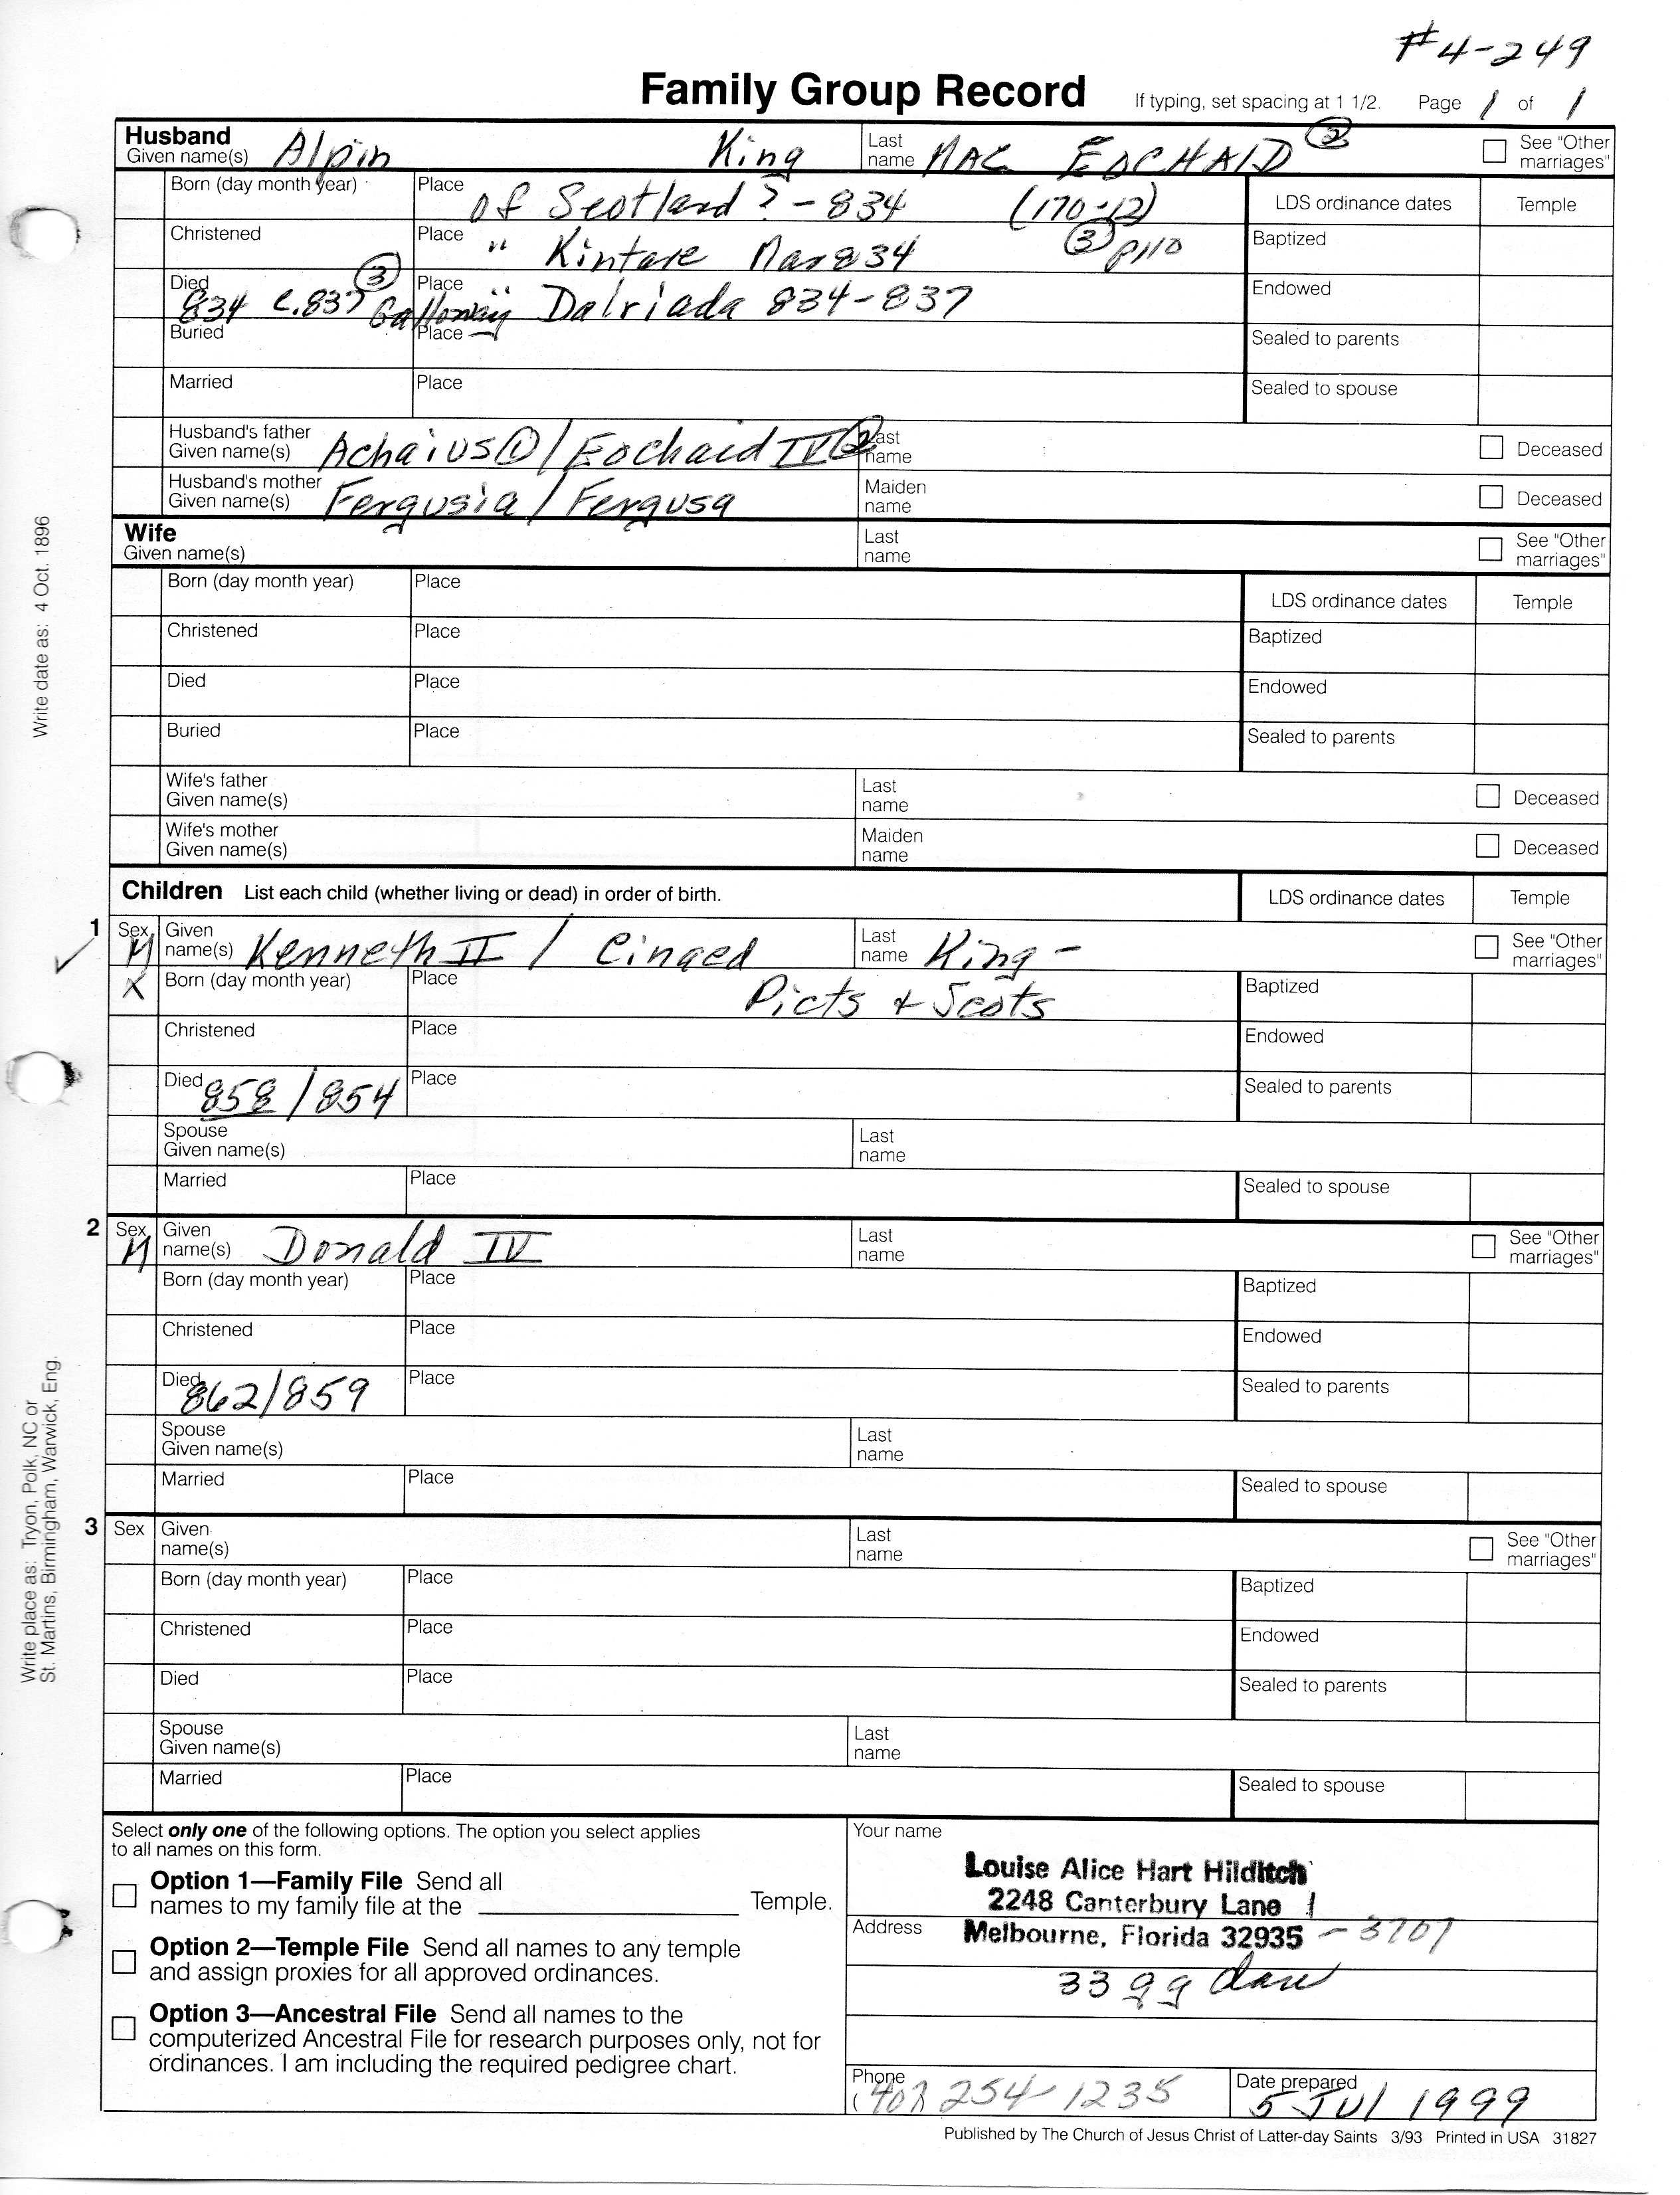 #4-249
Family Group Record If typing, set spacing at 1 1/2. Page 1 of 1
Husband
Given name(s) Alpin King Last name MAC EOCHAID ② See "Other marriages"
Born (day month year) Place of Scotland ? - 834 (170-12) LDS ordinance dates Temple
Christened Place " Kintare Mar 834 ③ p110 Baptized
Died 834 c.837 ③ Galloway Place " Dalriada 834-837 Endowed
Buried Place Sealed to parents
Married Place Sealed to spouse
Husband's father Given name(s) Achaius ① / Eochaid IV ② Last name Deceased
Husband's mother Given name(s) Fergusia / Fergusa Maiden name Deceased
Wife
Given name(s) Last name See "Other marriages"
Born (day month year) Place LDS ordinance dates Temple
Christened Place Baptized
Died Place Endowed
Buried Place Sealed to parents
Wife's father Given name(s) Last name Deceased
Wife's mother Given name(s) Maiden name Deceased
Children List each child (whether living or dead) in order of birth. LDS ordinance dates Temple
1 Sex M Given name(s) Kenneth II / Cinaed Last name King - See "Other marriages"
X Born (day month year) Place Picts + Scots Baptized
Christened Place Endowed
Died 858 / 854 Place Sealed to parents
Spouse Given name(s) Last name
Married Place Sealed to spouse
2 Sex M Given name(s) Donald IV Last name See "Other marriages"
Born (day month year) Place Baptized
Christened Place Endowed
Died 862/859 Place Sealed to parents
Spouse Given name(s) Last name
Married Place Sealed to spouse
3 Sex Given name(s) Last name See "Other marriages"
Born (day month year) Place Baptized
Christened Place Endowed
Died Place Sealed to parents
Spouse Given name(s) Last name
Married Place Sealed to spouse
Select only one of the following options. The option you select applies
to all names on this form.
Option 1—Family File Send all
names to my family file at the Temple.
Option 2—Temple File Send all names to any temple
and assign proxies for all approved ordinances.
Option 3—Ancestral File Send all names to the
computerized Ancestral File for research purposes only, not for
ordinances. I am including the required pedigree chart.
Your name
Louise Alice Hart Hilditch
2248 Canterbury Lane
Address Melbourne, Florida 32935 - 3707
33 gg dau
Phone (407 254-1235 Date prepared 5 Jul 1999
Published by The Church of Jesus Christ of Latter-day Saints 3/93 Printed in USA 31827
Write date as: 4 Oct. 1896
Write place as: Tryon, Polk, NC or
St. Martins, Birmingham, Warwick, Eng.